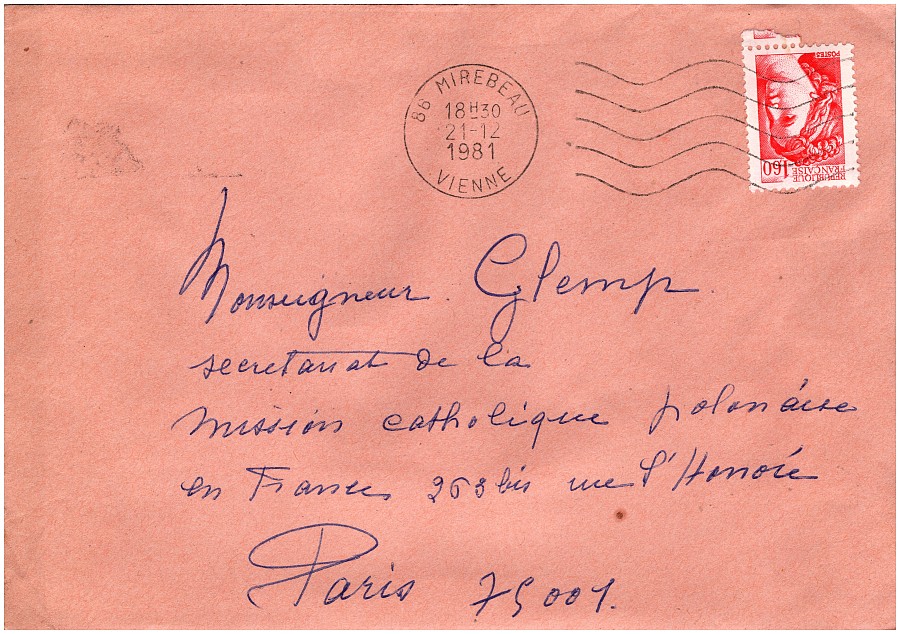 86 MIREBEAU
18H30
21-12
1981
VIENNE
POSTES
1,60
REPUBLIQUE
FRANÇAISE
Monseigneur Glemp
secretariat de la
mission catholique polonaise
en France 263 bis rue St Honoré
Paris 75001.